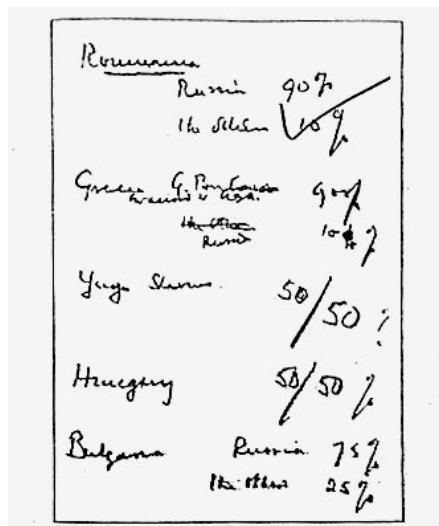 Roumania
Russia 90%
The others 10%
Greece G. Britain 90%
in accord w USA.
Russia 10%
Yugo Slavia 50/50%
Hungary 50/50%
Bulgaria Russia 75%
The others 25%